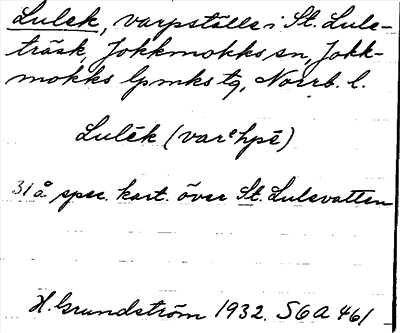 Lulek, varpställe i St. Lule-
träsk, Jokkmokks sn, Jokk-
mokks lpmks tg, Norrb. l.
Lulēk (varᵉhpē)
31 å spec. kart. över St. Lulevatten
H. Grundström 1932. SGA 461